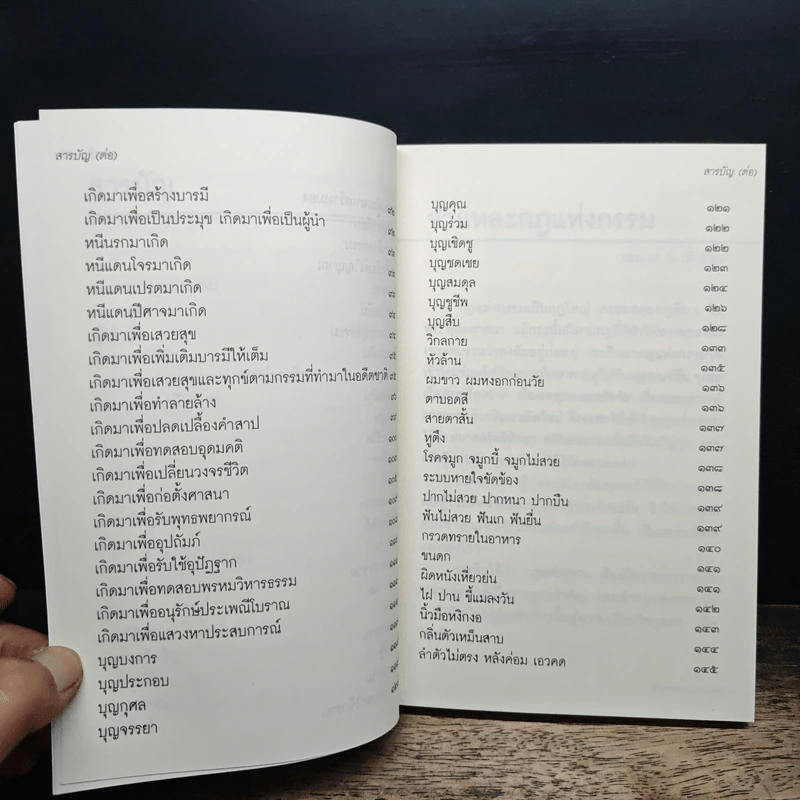 สารบัญ (ต่อ)
เกิดมาเพื่อสร้างบารมี
เกิดมาเพื่อเป็นประมุข เกิดมาเพื่อเป็นผู้นำ
หนีนรกมาเกิด
หนีแดนโจรมาเกิด
หนีแดนเปรตมาเกิด
หนีแดนปีศาจมาเกิด
เกิดมาเพื่อเสวยสุข
เกิดมาเพื่อเพิ่มเติมบารมีให้เต็ม
เกิดมาเพื่อเสวยสุขและทุกข์ตามกรรมที่ทำมาในอดีตชาติ
เกิดมาเพื่อทำลายล้าง
เกิดมาเพื่อปลดเปลื้องคำสาป
เกิดมาเพื่อทดสอบอุดมคติ
เกิดมาเพื่อเปลี่ยนวงจรชีวิต
เกิดมาเพื่อก่อตั้งศาสนา
เกิดมาเพื่อรับพุทธพยากรณ์
เกิดมาเพื่ออุปถัมภ์
เกิดมาเพื่อรับใช้อุปัฏฐาก
เกิดมาเพื่อทดสอบพรหมวิหารธรรม
เกิดมาเพื่ออนุรักษ์ประเพณีโบราณ
เกิดมาเพื่อแสวงหาประสบการณ์
บุญบงการ
บุญประกอบ
บุญกุศล
บุญจรรยา
สารบัญ (ต่อ)
บุญคุณ ๑๒๑
บุญร่วม ๑๒๒
บุญเชิดชู ๑๒๒
บุญชดเชย ๑๒๓
บุญสมดุล ๑๒๔
บุญชูชีพ ๑๒๖
บุญสืบ ๑๒๘
วิกลกาย ๑๓๓
หัวล้าน ๑๓๕
ผมขาว ผมหงอกก่อนวัย ๑๓๖
ตาบอดสี ๑๓๖
สายตาสั้น ๑๓๗
หูตึง ๑๓๗
โรคจมูก จมูกบี้ จมูกไม่สวย ๑๓๘
ระบบหายใจขัดข้อง ๑๓๘
ปากไม่สวย ปากหนา ปากบืน ๑๓๙
ฟันไม่สวย ฟันเก ฟันยื่น ๑๓๙
กรวดทรายในอาหาร ๑๔๐
ขนดก ๑๔๑
ผิดหนังเหี่ยวย่น ๑๔๑
ไฝ ปาน ขี้แมลงวัน ๑๔๒
นิ้วมือหงิกงอ ๑๔๓
กลิ่นตัวเหม็นสาบ ๑๔๔
ลำตัวไม่ตรง หลังค่อม เอวคด ๑๔๕